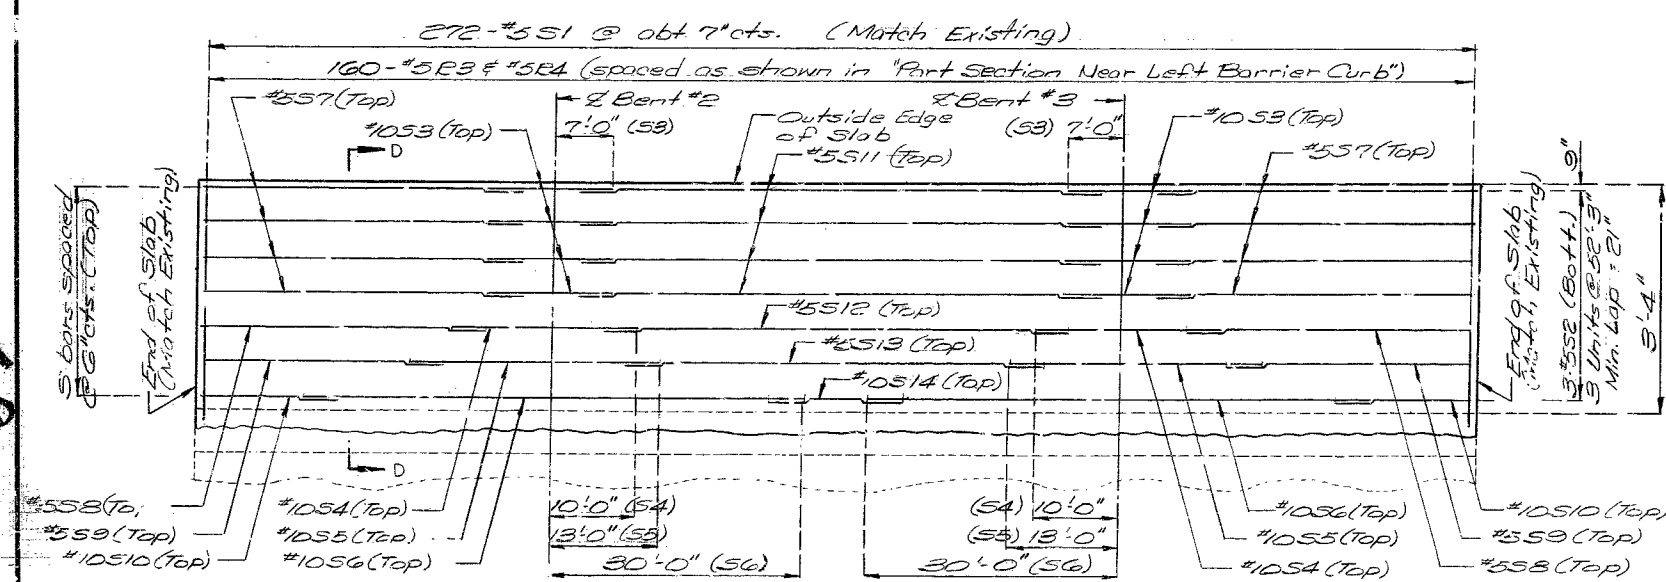 272-#5S1 @ abt 7" cts. (Match Existing)
160-#5R3 & #5R4 (spaced as shown in "Part Section Near Left Barrier Curb")
#5S7 (Top)
℄ Bent #2
℄ Bent #3
#10S3 (Top)
7'-0" (S3)
Outside Edge
of Slab
(S3) 7'-0"
#10S3 (Top)
#5S11 (Top)
#5S7 (Top)
D
9"
S bars spaced
@ 6" cts. (Top)
End of Slab
(Match Existing)
End of Slab
(Match Existing)
3-#5S2 (Bott.)
3 Units @ 52'-3"
Min. Lap = 21"
3'-4"
#5S12 (Top)
#5S13 (Top)
#10S14 (Top)
D
#5S8 (To
#5S9 (Top)
#10S10 (Top)
#10S4 (Top)
#10S5 (Top)
#10S6 (Top)
10'-0" (S4)
13'-0" (S5)
30'-0" (S6)
(S4) 10'-0"
(S5) 13'-0"
30'-0" (S6)
#10S6 (Top)
#10S5 (Top)
#10S4 (Top)
#10S10 (Top)
#5S9 (Top)
#5S8 (Top)